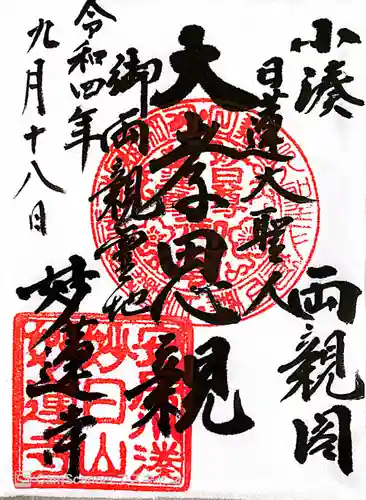 小湊
両親閣
日蓮大聖人
大孝恩親
御両親霊地
妙蓮寺
令和四年
九月十八日